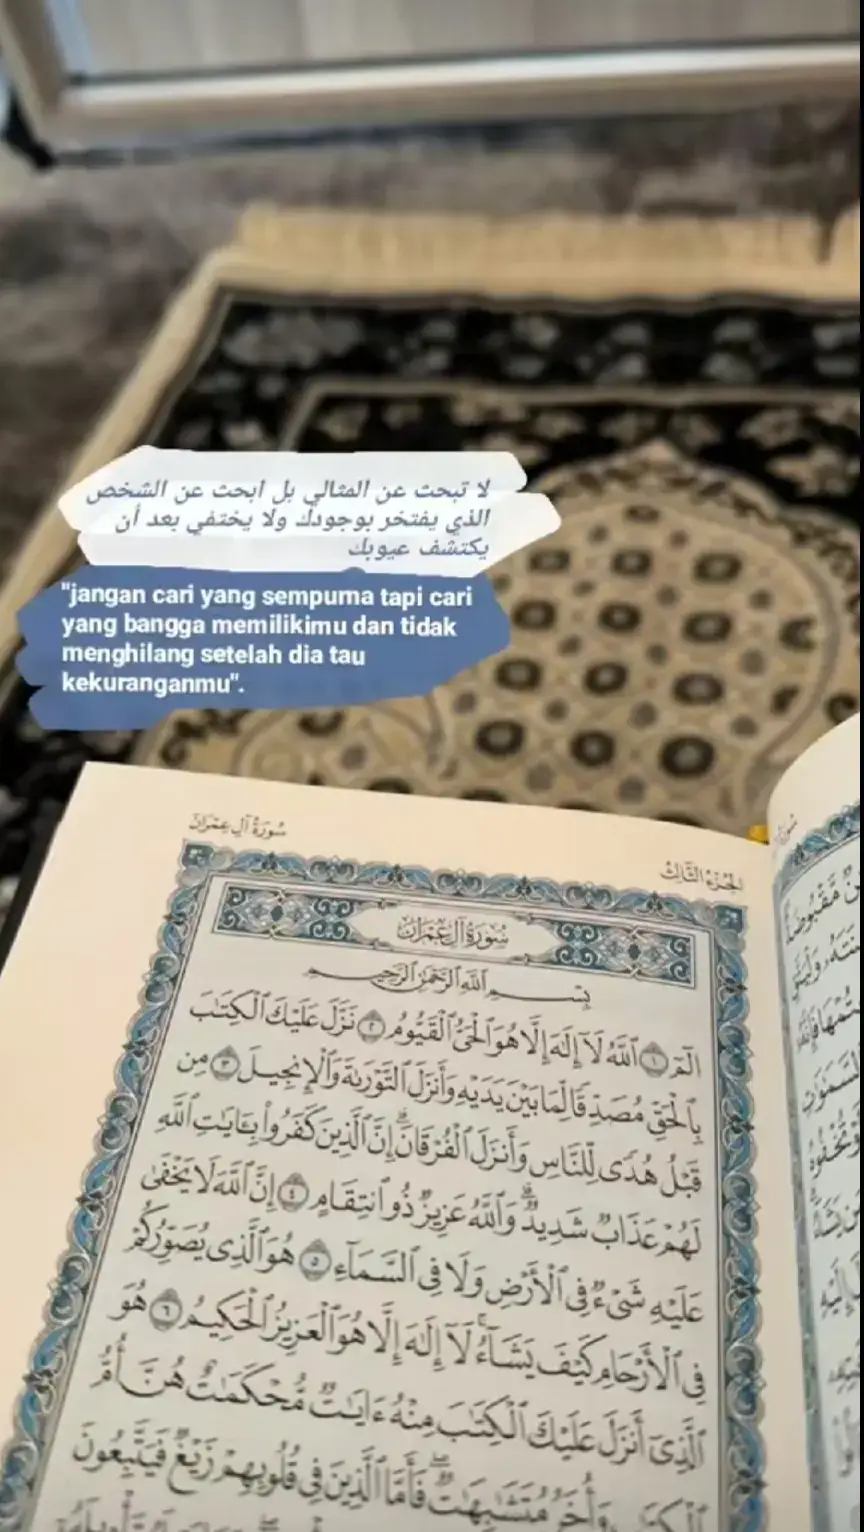 لا تبحث عن المثالي بل ابحث عن الشخص
الذي يفتخر بوجودك ولا يختفي بعد أن
يكتشف عيوبك
"jangan cari yang sempurna tapi cari
yang bangga memilikimu dan tidak
menghilang setelah dia tau
kekuranganmu".
سُورَةُ آلِ عِمْرَانَ
الجُزْءُ الثَّالِثُ
سُورَةُ آلِ عِمْرَانَ
بِسْمِ ٱللَّهِ ٱلرَّحْمَٰنِ ٱلرَّحِيمِ
الٓمٓ ١ ٱللَّهُ لَآ إِلَٰهَ إِلَّا هُوَ ٱلْحَىُّ ٱلْقَيُّومُ ٢ نَزَّلَ عَلَيْكَ ٱلْكِتَٰبَ
بِٱلْحَقِّ مُصَدِّقًا لِّمَا بَيْنَ يَدَيْهِ وَأَنزَلَ ٱلتَّوْرَىٰةَ وَٱلْإِنجِيلَ ٣ مِن
قَبْلُ هُدًى لِّلنَّاسِ وَأَنزَلَ ٱلْفُرْقَانَ ۗ إِنَّ ٱلَّذِينَ كَفَرُوا۟ بِـَٔايَٰتِ ٱللَّهِ
لَهُمْ عَذَابٌ شَدِيدٌ ۗ وَٱللَّهُ عَزِيزٌ ذُو ٱنتِقَامٍ ٤ إِنَّ ٱللَّهَ لَا يَخْفَىٰ
عَلَيْهِ شَىْءٌ فِى ٱلْأَرْضِ وَلَا فِى ٱلسَّمَآءِ ٥ هُوَ ٱلَّذِى يُصَوِّرُكُمْ
فِى ٱلْأَرْحَامِ كَيْفَ يَشَآءُ ۚ لَآ إِلَٰهَ إِلَّا هُوَ ٱلْعَزِيزُ ٱلْحَكِيمُ ٦ هُوَ
ٱلَّذِىٓ أَنزَلَ عَلَيْكَ ٱلْكِتَٰبَ مِنْهُ ءَايَٰتٌ مُّحْكَمَٰتٌ هُنَّ أُمُّ
ٱلْكِتَٰبِ وَأُخَرُ مُتَشَٰبِهَٰتٌ ۖ فَأَمَّا ٱلَّذِينَ فِى قُلُوبِهِمْ زَيْغٌ فَيَتَّبِعُونَ